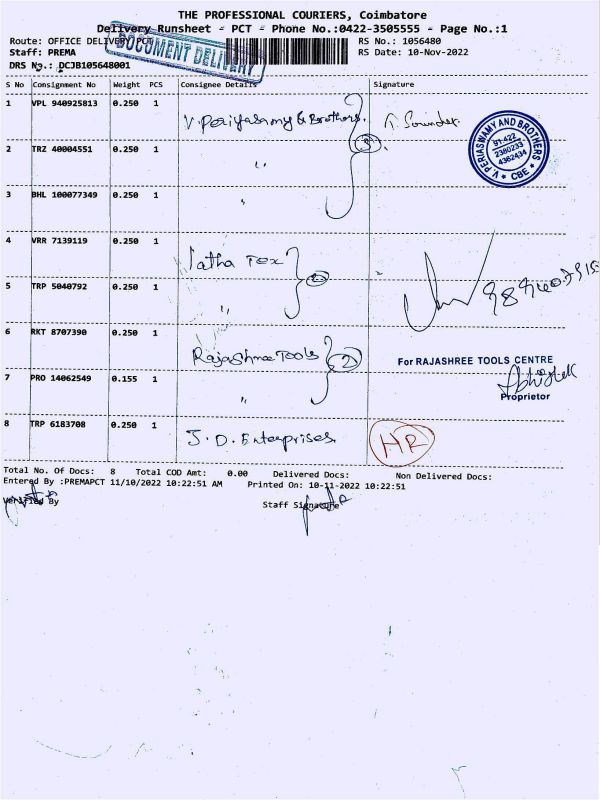 THE PROFESSIONAL COURIERS, Coimbatore
Delivery Runsheet - PCT - Phone No.:0422-3505555 - Page No.:1
Route: OFFICE DELIVERY PCT
RS No.: 1056480
Staff: PREMA
RS Date: 10-Nov-2022
DOCUMENT DELIVERY
DRS No.: DCJB105648001
S No Consignment No Weight PCS Consignee Details Signature
1 VPL 940925813 0.250 1 V. Periyasamy & Brothers.
2 TRZ 40004551 0.250 1 "
3 BHL 100077349 0.250 1 "
3
V PERIASWAMY AND BROTHERS
91-422
2380233
4362434
* CBE *
4 VRR 7139119 0.250 1 Latha Tex
5 TRP 5040792 0.250 1 "
2
6 RKT 8707390 0.250 1 Rajashree Tools
7 PRO 14062549 0.155 1 "
2
For RAJASHREE TOOLS CENTRE
Abhishek
Proprietor
8 TRP 6183708 0.250 1 J. D. Enterprises
HR
Total No. Of Docs: 8 Total COD Amt: 0.00 Delivered Docs: Non Delivered Docs:
Entered By :PREMAPCT 11/10/2022 10:22:51 AM Printed On: 10-11-2022 10:22:51
Verified By
Staff Signature